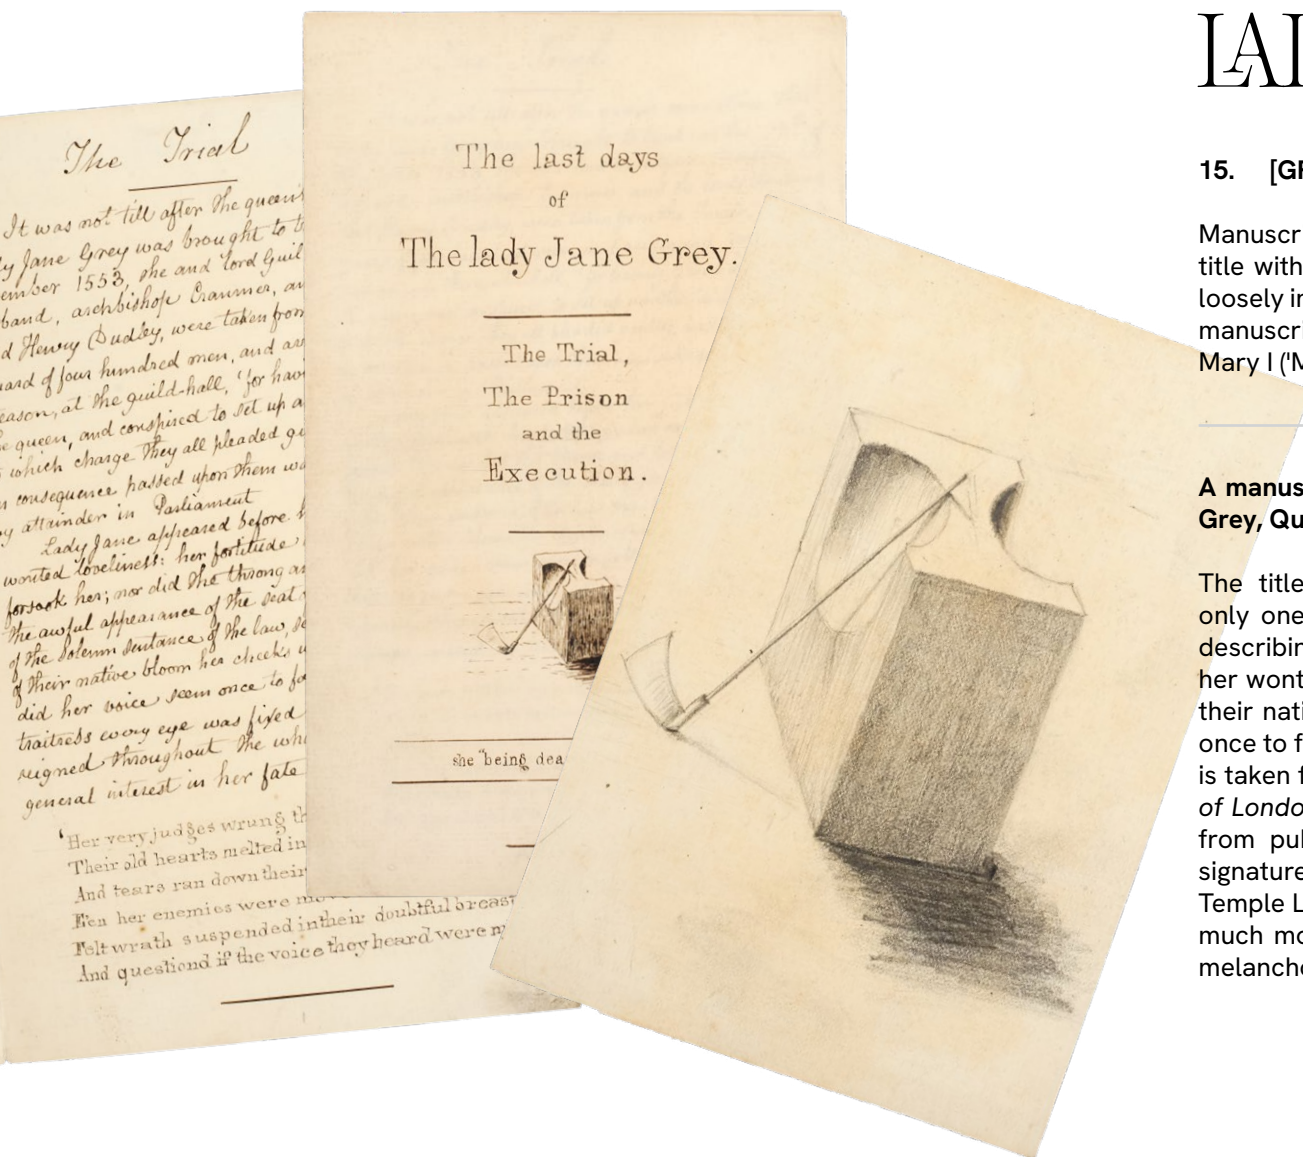 The Trial
It was not till after the queen's
y Jane Grey was brought to t
ember 1553, she and lord Guil
band, archbishop Cranmer, an
d Henry Dudley, were taken from
uard of four hundred men, and arr
eason, at the guild-hall, "for havi
e queen, and conspired to set up a
which charge they all pleaded gu
n consequence passed upon them wa
y attainder in Parliament
Lady Jane appeared before h
wonted loveliness: her fortitude
forsook her; nor did the throng an
the awful appearance of the seat
of the solemn sentance of the law, se
of their native bloom her cheeks
did her voice seem once to fa
traitress every eye was fixed
reigned throughout the who
general interest in her fate
'Her very judges wrung th
Their old hearts melted in
And tears ran down their
Een her enemies were mov
Felt wrath suspended in their doubtful breast
And questiond if the voice they heard were m
The last days
of
The lady Jane Grey.
The Trial,
The Prison
and the
Execution.
she "being dea
LAI
15. [GR
Manuscr
title with
loosely in
manuscri
Mary I ('M
A manus
Grey, Qu
The title
only one
describin
her wont
their nati
once to f
is taken f
of Londo
from pul
signature
Temple L
much mo
melancho